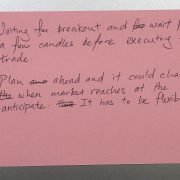 Waiting for breakout and wait
a few candles before executing
trade.
Plan ahead and it could
when market reaches at the
anticipate. It has to be